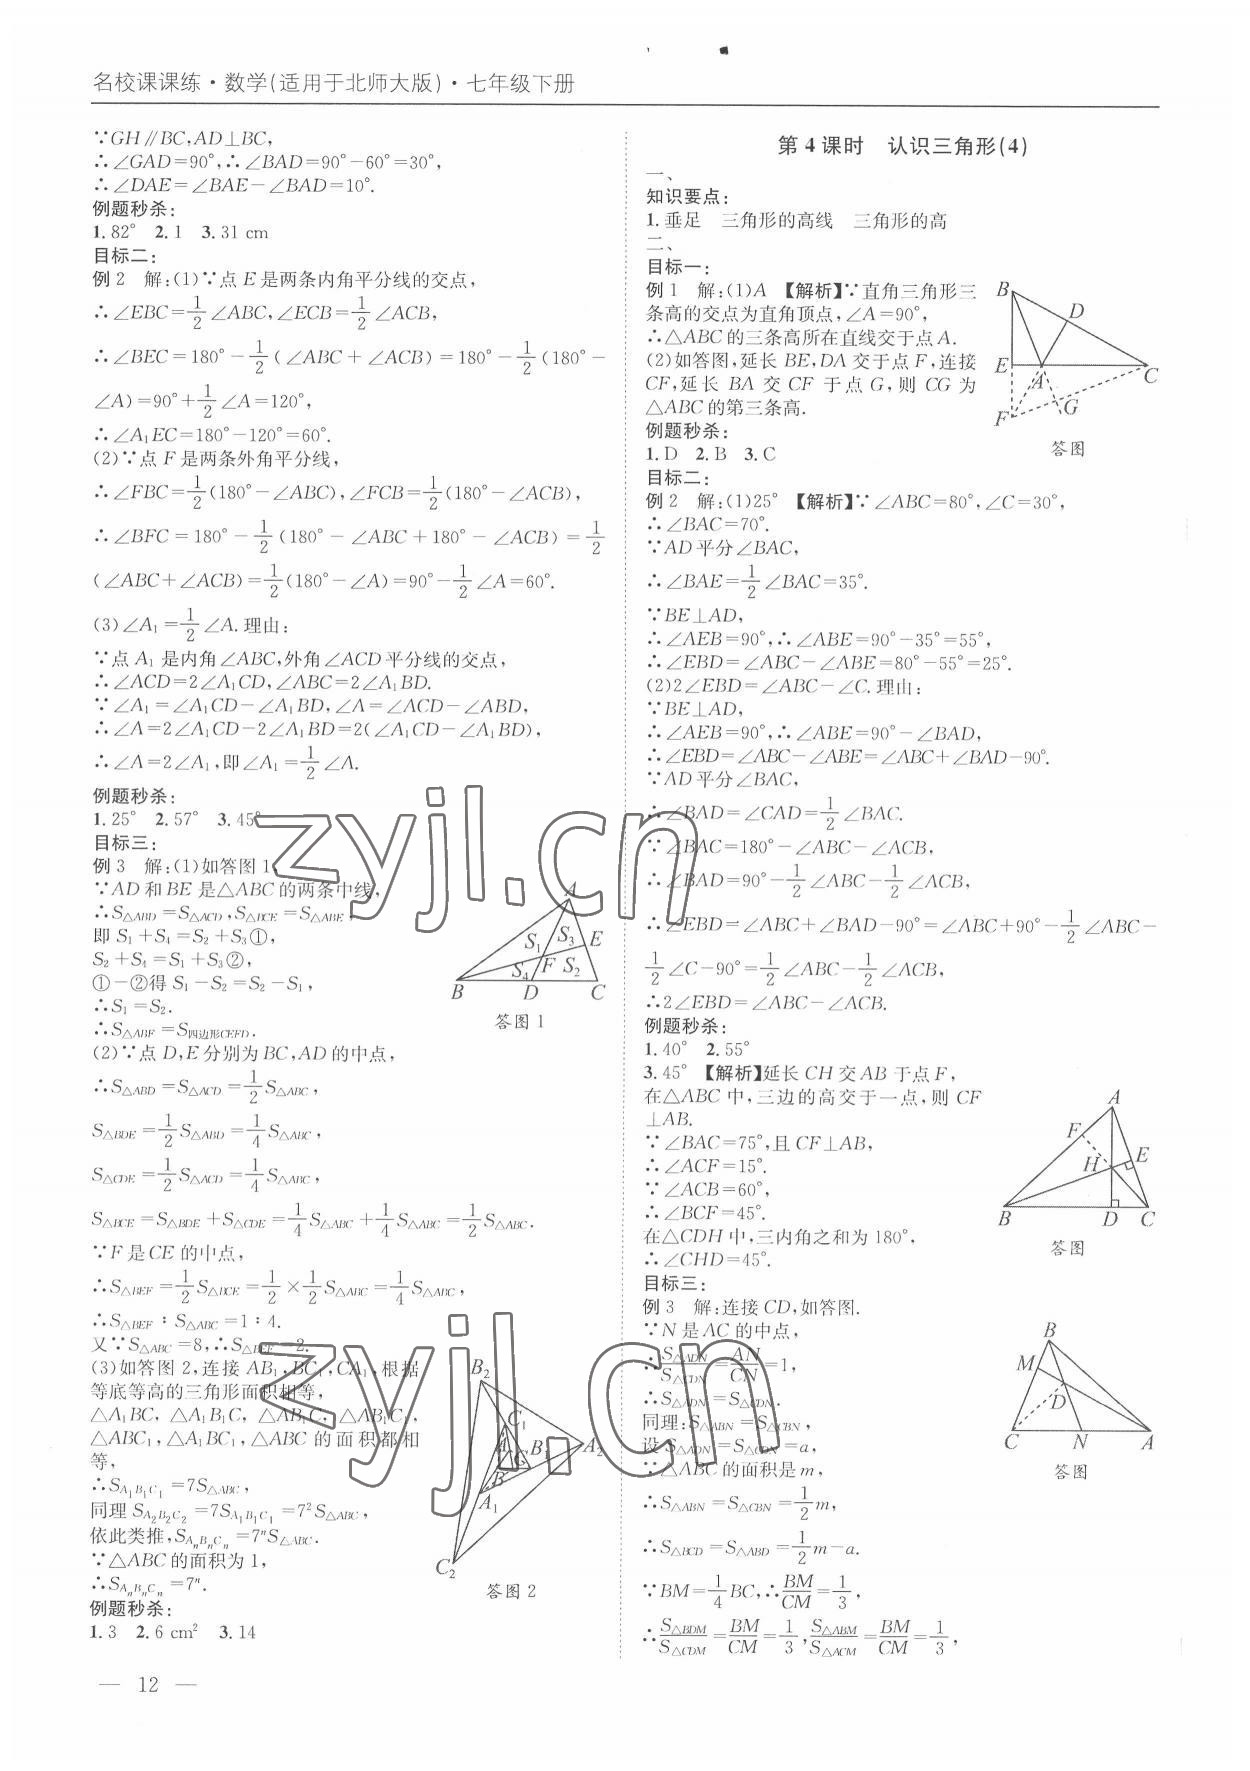 名校课课练·数学(适用于北师大版)·七年级下册
∵GH∥BC,AD⊥BC,
∴∠GAD=90°,∴∠BAD=90°-60°=30°,
∴∠DAE=∠BAE-∠BAD=10°.
例题秒杀:
1.82° 2.1 3.31 cm
目标二:
例2 解:(1)∵点E是两条内角平分线的交点,
∴∠EBC=1/2∠ABC,∠ECB=1/2∠ACB,
∴∠BEC=180°-1/2(∠ABC+∠ACB)=180°-1/2(180°-
∠A)=90°+1/2∠A=120°,
∴∠A₁EC=180°-120°=60°.
(2)∵点F是两条外角平分线,
∴∠FBC=1/2(180°-∠ABC),∠FCB=1/2(180°-∠ACB),
∴∠BFC=180°-1/2(180°-∠ABC+180°-∠ACB)=1/2
(∠ABC+∠ACB)=1/2(180°-∠A)=90°-1/2∠A=60°.
(3)∠A₁=1/2∠A.理由:
∵点A₁是内角∠ABC,外角∠ACD平分线的交点,
∴∠ACD=2∠A₁CD,∠ABC=2∠A₁BD.
∵∠A₁=∠A₁CD-∠A₁BD,∠A=∠ACD-∠ABD,
∴∠A=2∠A₁CD-2∠A₁BD=2(∠A₁CD-∠A₁BD),
∴∠A=2∠A₁,即∠A₁=1/2∠A.
例题秒杀:
1.25° 2.57° 3.45°
目标三:
例3 解:(1)如答图1,
∵AD和BE是△ABC的两条中线,
∴S△ABD=S△ACD,S△BCE=S△ABE,
即S₁+S₄=S₂+S₃①,
S₂+S₄=S₁+S₃②,
①-②得S₁-S₂=S₂-S₁,
∴S₁=S₂.
∴S△ABF=S四边形CEFD.
A
S₁ S₃ E
S₄ F S₂
B D C
答图1
(2)∵点D,E分别为BC,AD的中点,
∴S△ABD=S△ACD=1/2S△ABC,
S△BDE=1/2S△ABD=1/4S△ABC,
S△CDE=1/2S△ACD=1/4S△ABC,
S△BCE=S△BDE+S△CDE=1/4S△ABC+1/4S△ABC=1/2S△ABC.
∵F是CE的中点,
∴S△BEF=1/2S△BCE=1/2×1/2S△ABC=1/4S△ABC,
∴S△BEF∶S△ABC=1∶4.
又∵S△ABC=8,∴S△BEF=2.
(3)如答图2,连接AB₁,BC₁,CA₁,根据
等底等高的三角形面积相等,
△A₁BC,△A₁B₁C,△AB₁C,△AB₁C₁,
△ABC₁,△A₁BC₁,△ABC的面积都相
等,
∴S△A₁B₁C₁=7S△ABC,
同理S△A₂B₂C₂=7S△A₁B₁C₁=7²S△ABC,
依此类推,S△AₙBₙCₙ=7ⁿS△ABC.
∵△ABC的面积为1,
∴S△AₙBₙCₙ=7ⁿ.
B₂
C₁
A B₁ A₂
C
B
A₁
C₂
答图2
例题秒杀:
1.3 2.6 cm² 3.14
— 12 —
第4课时 认识三角形(4)
一、
知识要点:
1.垂足 三角形的高线 三角形的高
二、
目标一:
例1 解:(1)A 【解析】∵直角三角形三
条高的交点为直角顶点,∠A=90°,
∴△ABC的三条高所在直线交于点A.
(2)如答图,延长BE,DA交于点F,连接
CF,延长BA交CF于点G,则CG为
△ABC的第三条高.
B
D
E A C
F G
答图
例题秒杀:
1.D 2.B 3.C
目标二:
例2 解:(1)25° 【解析】∵∠ABC=80°,∠C=30°,
∴∠BAC=70°.
∵AD平分∠BAC,
∴∠BAE=1/2∠BAC=35°.
∵BE⊥AD,
∴∠AEB=90°,∴∠ABE=90°-35°=55°,
∴∠EBD=∠ABC-∠ABE=80°-55°=25°.
(2)2∠EBD=∠ABC-∠C.理由:
∵BE⊥AD,
∴∠AEB=90°,∴∠ABE=90°-∠BAD,
∴∠EBD=∠ABC-∠ABE=∠ABC+∠BAD-90°.
∵AD平分∠BAC,
∴∠BAD=∠CAD=1/2∠BAC.
∵∠BAC=180°-∠ABC-∠ACB,
∴∠BAD=90°-1/2∠ABC-1/2∠ACB,
∴∠EBD=∠ABC+∠BAD-90°=∠ABC+90°-1/2∠ABC-
1/2∠C-90°=1/2∠ABC-1/2∠ACB,
∴2∠EBD=∠ABC-∠ACB.
例题秒杀:
1.40° 2.55°
3.45° 【解析】延长CH交AB于点F,
在△ABC中,三边的高交于一点,则CF
⊥AB.
∵∠BAC=75°,且CF⊥AB,
∴∠ACF=15°.
∵∠ACB=60°,
∴∠BCF=45°.
在△CDH中,三内角之和为180°,
∴∠CHD=45°.
A
F
H E
B D C
答图
目标三:
例3 解:连接CD,如答图.
∵N是AC的中点,
∴S△ADN/S△CDN=AN/CN=1,
∴S△ADN=S△CDN.
同理:S△ABN=S△CBN,
设S△ADN=S△CDN=a,
∵△ABC的面积是m,
∴S△ABN=S△CBN=1/2m,
∴S△BCD=S△ABD=1/2m-a.
∵BM=1/4BC,∴BM/CM=1/3,
∴S△BDM/S△CDM=BM/CM=1/3,S△ABM/S△ACM=BM/CM=1/3,
B
M
D
C N A
答图
zyjl.cn
zyjl.cn